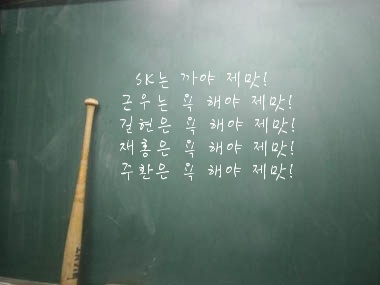 SK는 까야 제맛!
근우는 욕 해야 제맛!
걸헌은 욕 해야 제맛!
재홍은 욕 해야 제맛!
주환은 욕 해야 제맛!